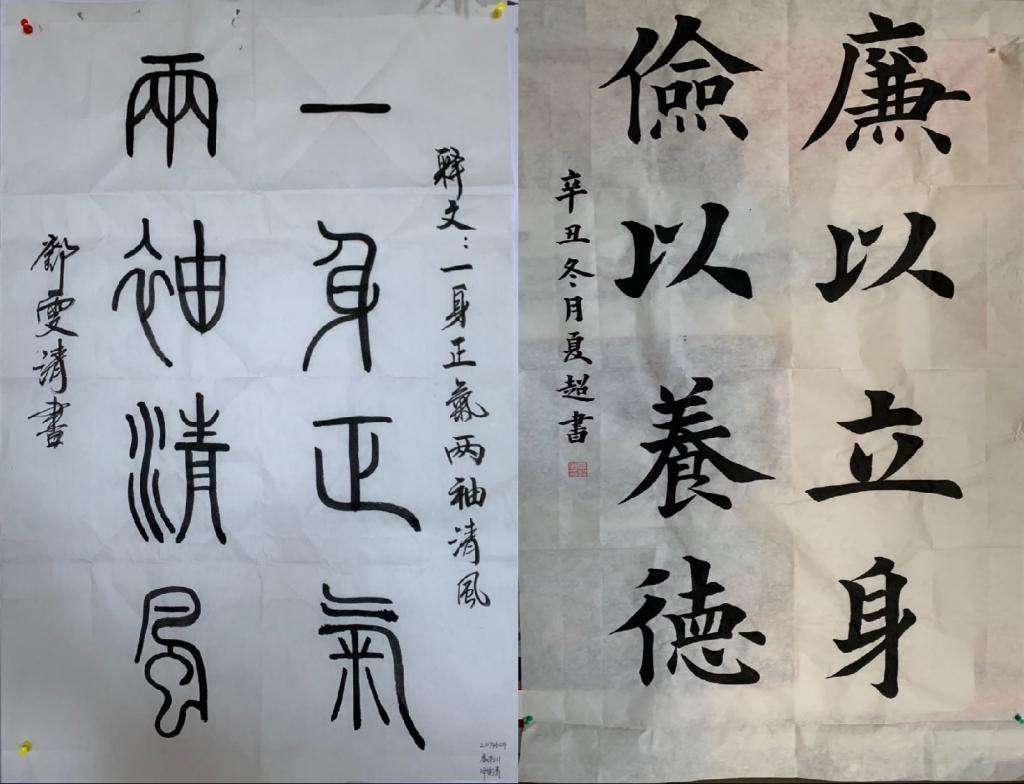 释文：一身正氣两袖清風
一身正氣
兩袖清風
鄧雯清書
廉以立身
儉以養德
辛丑冬月夏超書